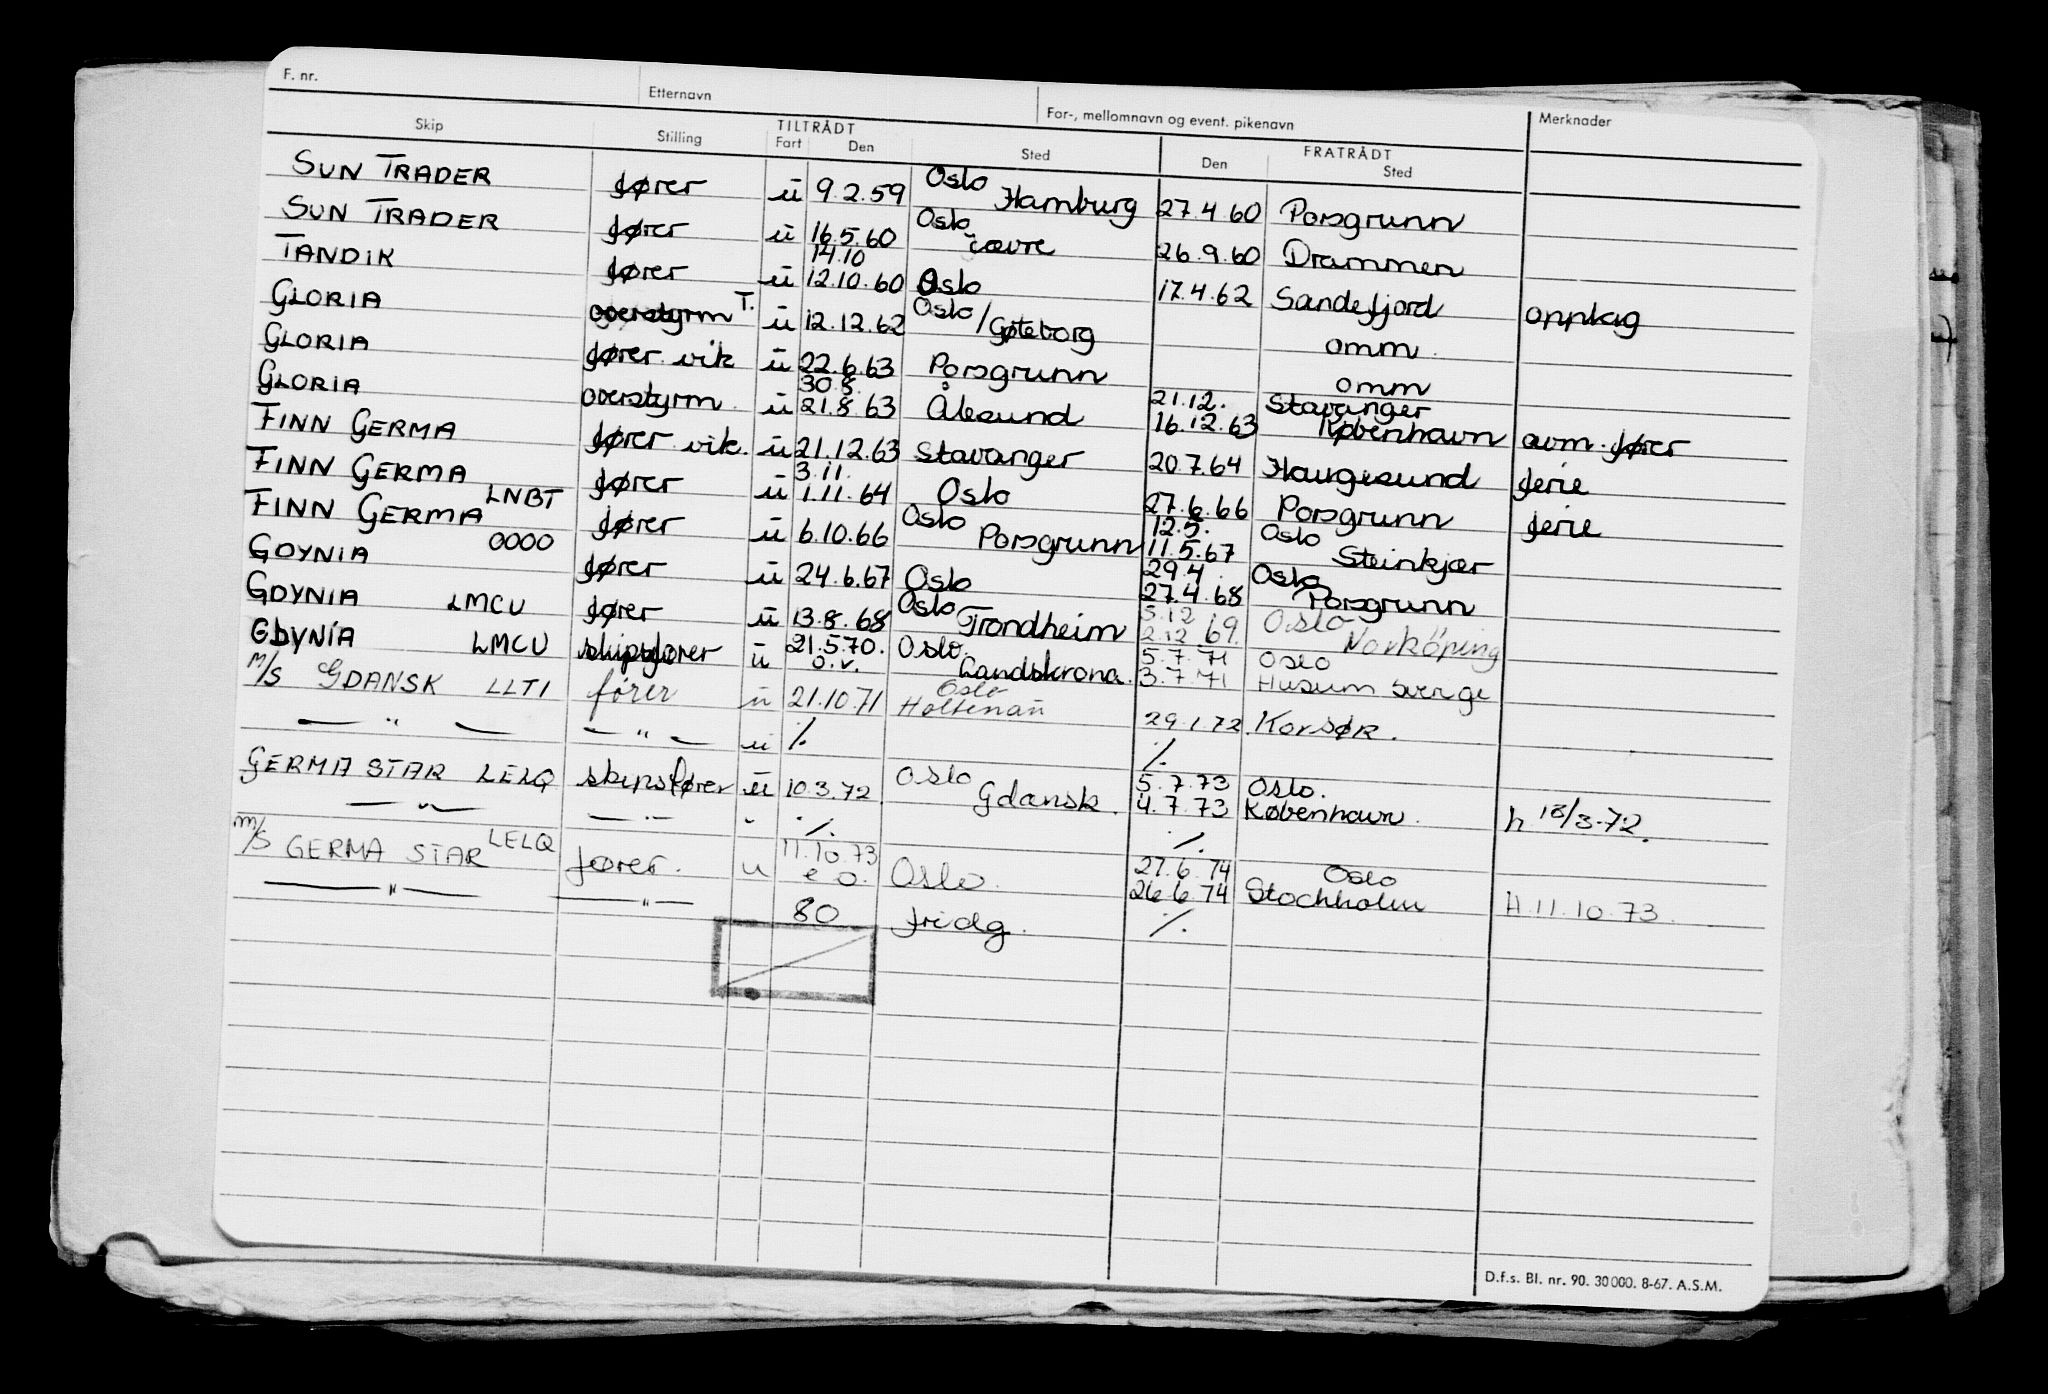 F. nr. Etternavn For-, mellomnavn og event. pikenavn Merknader
Skip Stilling TILTRÅDT Fart Den Sted FRATRÅDT Den Sted
SUN TRADER fører u 9.2.59 Oslo Hamburg 27.4.60 Porsgrunn
SUN TRADER fører u 16.5.60 Oslo 26.9.60 Drammen
TANDIK fører u 14.10 12.10.60 Oslo 17.4.62 Sandefjord opplag
GLORIA overstyrm T. u 12.12.62 Oslo/Gøteborg omm
GLORIA fører vik u 22.6.63 Porsgrunn omm
GLORIA overstyrm. u 30.8. 21.8.63 Ålesund 21.12. 16.12.63 Stavanger København avm. fører
FINN GERMA fører vik. u 21.12.63 Stavanger 20.7.64 Haugesund ferie
FINN GERMA fører u 3.11. 1.11.64 Oslo 27.6.66 Porsgrunn ferie
FINN GERMA LNBT fører u 6.10.66 Oslo Porsgrunn 12.5. 11.5.67 Oslo Steinkjær
GDYNIA 0000 fører u 24.6.67 Oslo 29.4. 27.4.68 Oslo Porsgrunn
GDYNIA LMCU fører u 13.8.68 Oslo Trondheim 5.12 2.12 69. Oslo Norköping
GDYNIA LMCU skipsfører u 21.5.70. o.v. Oslo. Landskrona. 5.7.71 3.7.71 Oslo Husum Sverige
m/s GDANSK LLTI fører u 21.10.71 Oslo Holtenau 29.1.72. Korsør.
— " — — " — u ./. ./.
GERMA STAR LELQ skipsfører u 10.3.72 Oslo Gdansk. 5.7.73 4.7.73 Oslo. København. h 18/3-72.
— " — — " — " ./. ./.
m/s GERMA STAR LELQ fører. u 11.10.73 e.o. Oslo. 27.6.74 26.6.74 Oslo Stockholm H.11.10.73.
— " — — " — 80 fridg. ./.
D.f.s. Bl. nr. 90. 30000. 8-67. A.S.M.